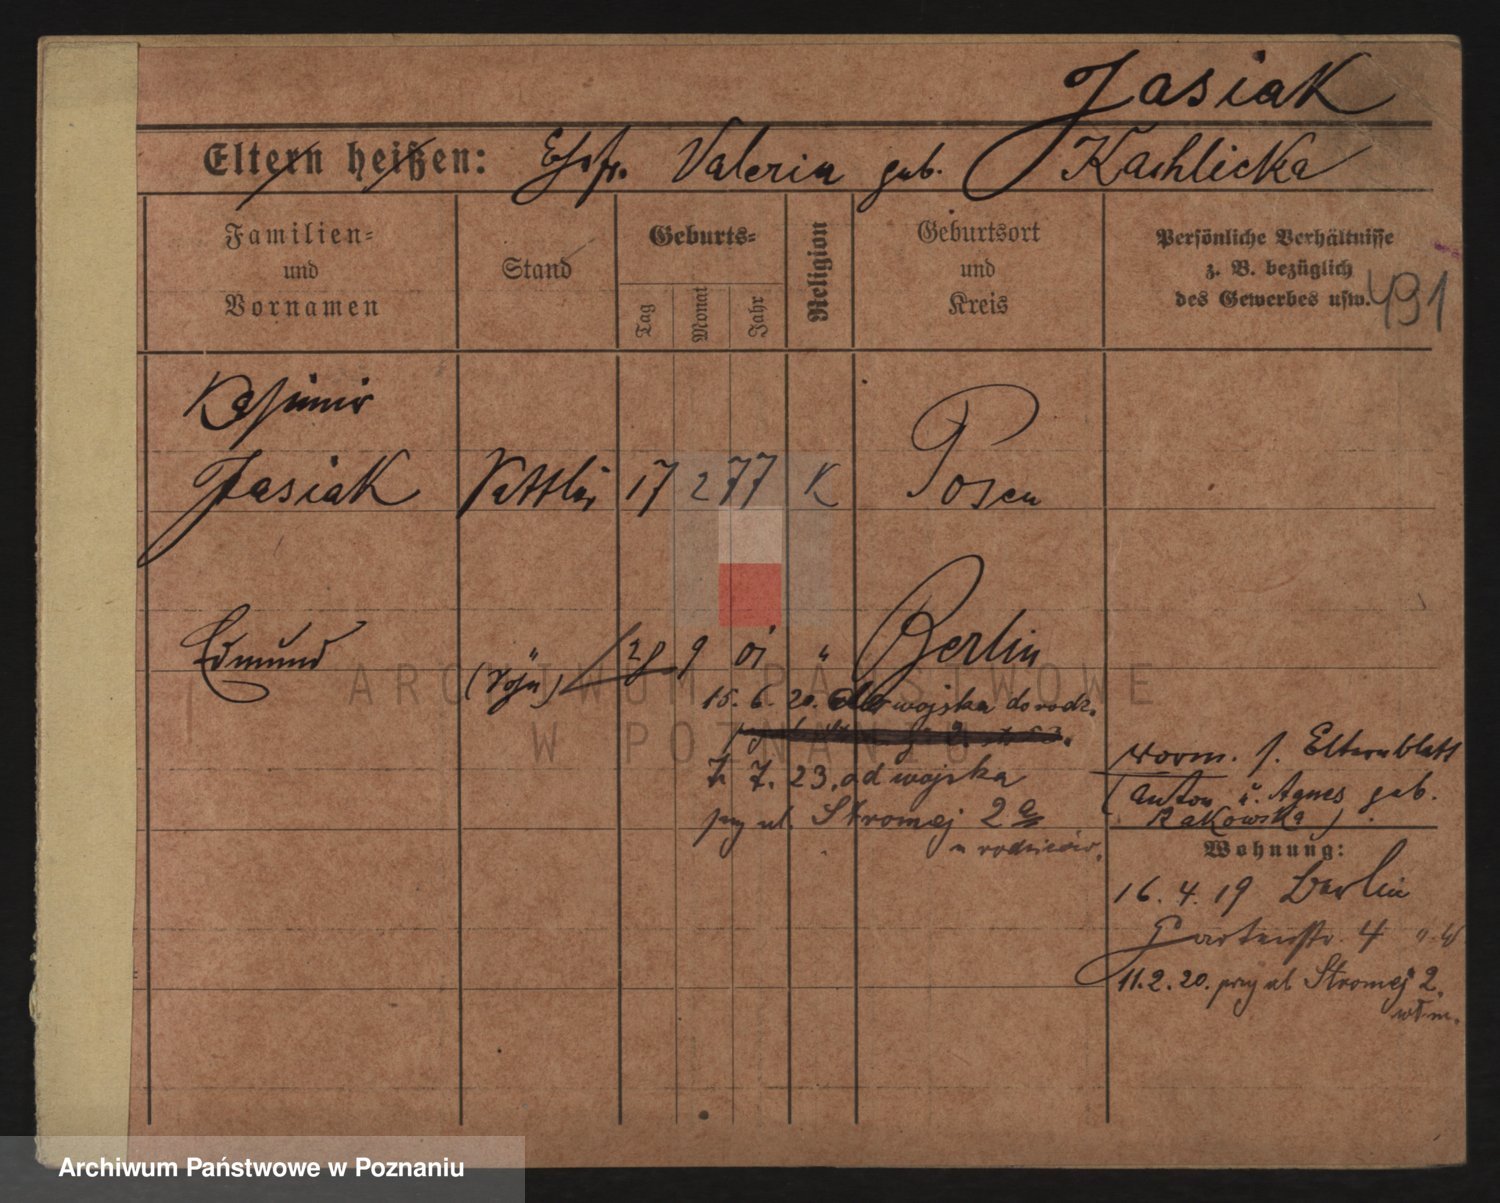 Jasiak
Eltern heißen: Ehefr. Valeria geb. Kachlicka
Familien=
und
Vornamen
Stand
Geburts=
Tag
Monat
Jahr
Religion
Geburtsort
und
Kreis
Persönliche Verhältnisse
z. B. bezüglich
des Gewerbes usw.
491
Kasimir
Jasiak Sattler 17 2 77 K Posen
Edmund (Sohn) 28 9 01 " Berlin
15. 6. 20. wojska do rodz.
7. 7. 23. od wojska
przy ul. Stromej 2a
u rodziców.
vorm. s. Elternblatt
(Anton u. Agnes geb.
Rakowska).
Wohnung:
16. 4. 19 Berlin
Gartenstr. 4
11. 2. 20. przy ul Stromej 2.
Archiwum Państwowe
w Poznaniu
Archiwum Państwowe w Poznaniu